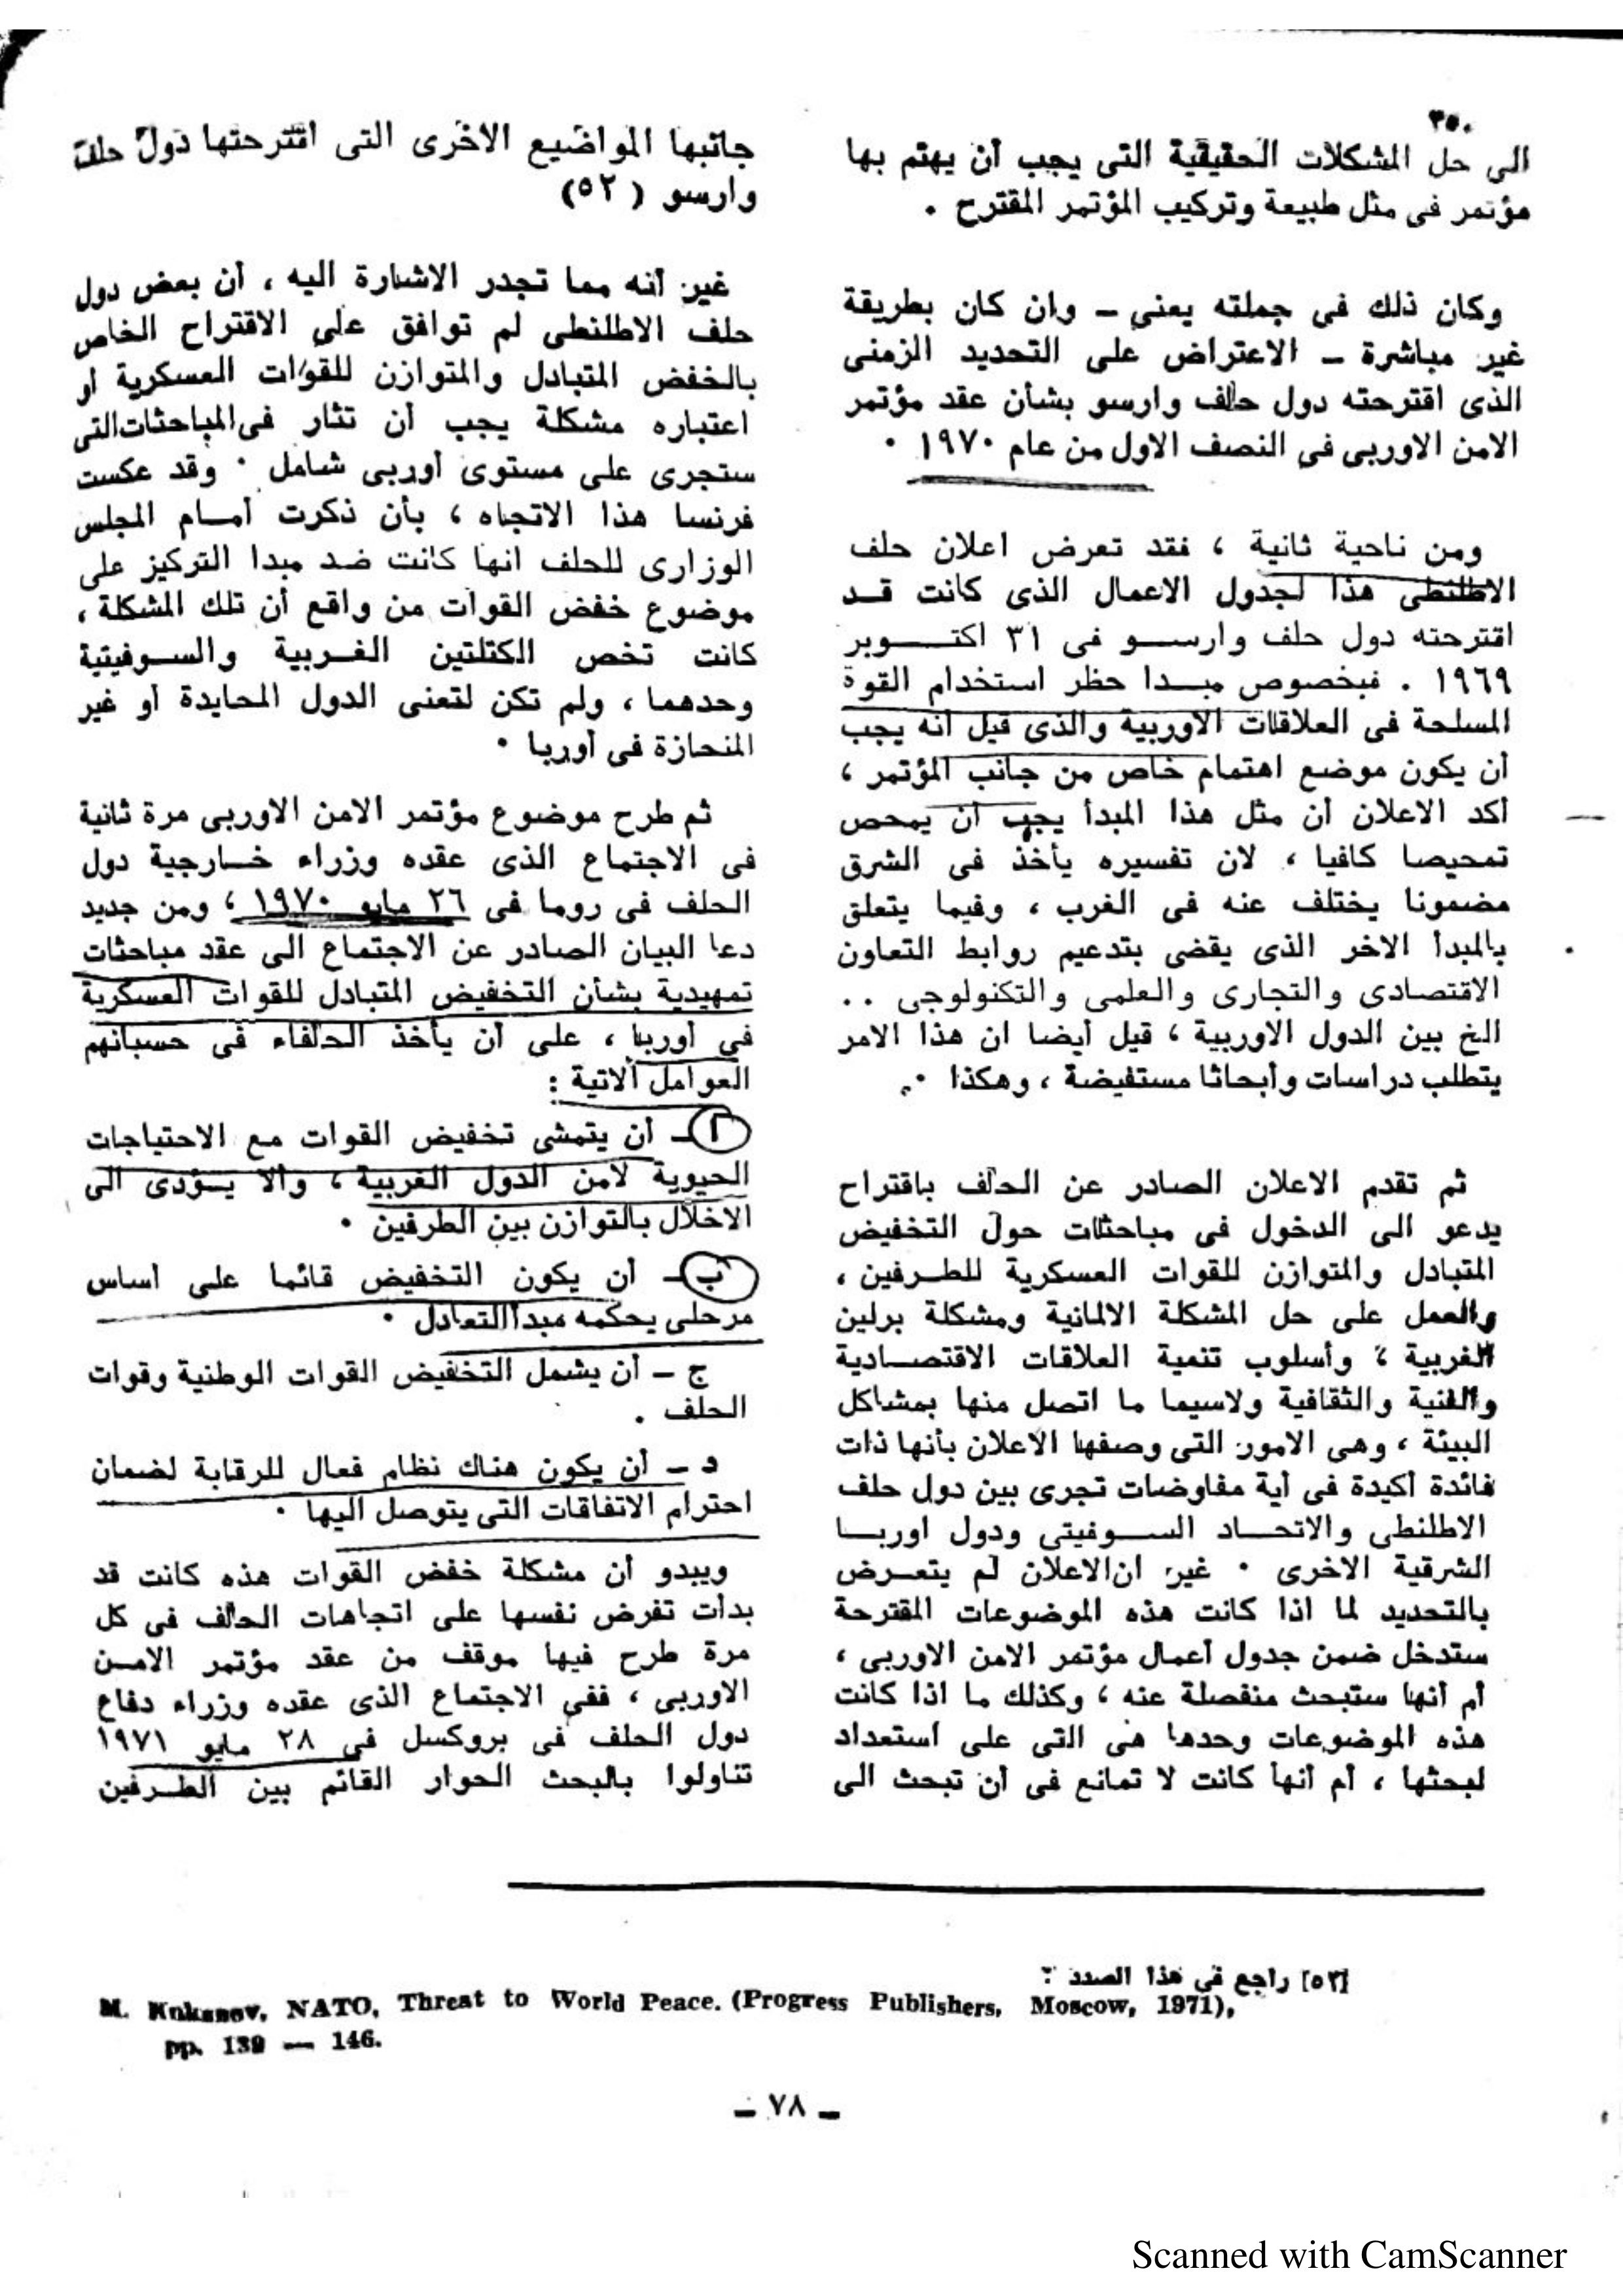 ٣٥٠
الى حل المشكلات الحقيقية التى يجب أن يهتم بها
مؤتمر فى مثل طبيعة وتركيب المؤتمر المقترح .
وكان ذلك فى جملته يعنى - وان كان بطريقة
غير مباشرة - الاعتراض على التحديد الزمنى
الذى اقترحته دول حلف وارسو بشأن عقد مؤتمر
الامن الاوربى فى النصف الاول من عام ١٩٧٠ .
ومن ناحية ثانية ، فقد تعرض اعلان حلف
الاطلنطى هذا لجدول الاعمال الذى كانت قد
اقترحته دول حلف وارسو فى ٣١ اكتوبر
١٩٦٩ . فبخصوص مبدا حظر استخدام القوة
المسلحة فى العلاقات الاوربية والذى قيل انه يجب
أن يكون موضع اهتمام خاص من جانب المؤتمر ،
أكد الاعلان أن مثل هذا المبدأ يجب أن يمحص
تمحيصا كافيا ، لان تفسيره يأخذ فى الشرق
مضمونا يختلف عنه فى الغرب ، وفيما يتعلق
بالمبدأ الاخر الذى يقضى بتدعيم روابط التعاون
الاقتصادى والتجارى والعلمى والتكنولوجى ..
الخ بين الدول الاوربية ، قيل أيضا ان هذا الامر
يتطلب دراسات وأبحاثا مستفيضة ، وهكذا ..
ثم تقدم الاعلان الصادر عن الحلف باقتراح
يدعو الى الدخول فى مباحثات حول التخفيض
المتبادل والمتوازن للقوات العسكرية للطرفين ،
والعمل على حل المشكلة الالمانية ومشكلة برلين
الغربية ، وأسلوب تنمية العلاقات الاقتصادية
والفنية والثقافية ولاسيما ما اتصل منها بمشاكل
البيئة ، وهى الامور التى وصفها الاعلان بأنها ذات
فائدة أكيدة فى أية مفاوضات تجرى بين دول حلف
الاطلنطى والاتحاد السوفيتى ودول اوربا
الشرقية الاخرى . غير ان الاعلان لم يتعرض
بالتحديد لما اذا كانت هذه الموضوعات المقترحة
ستدخل ضمن جدول أعمال مؤتمر الامن الاوربى ،
أم أنها ستبحث منفصلة عنه ، وكذلك ما اذا كانت
هذه الموضوعات وحدها هى التى على استعداد
لبحثها ، أم أنها كانت لا تمانع فى أن تبحث الى
جانبها المواضيع الاخرى التى اقترحتها دول حلف
وارسو (٥٢)
غير أنه مما تجدر الاشارة اليه ، أن بعض دول
حلف الاطلنطى لم توافق على الاقتراح الخاص
بالخفض المتبادل والمتوازن للقوات العسكرية أو
اعتباره مشكلة يجب أن تثار فى المباحثات التى
ستجرى على مستوى أوربى شامل . وقد عكست
فرنسا هذا الاتجاه ، بأن ذكرت أمام المجلس
الوزارى للحلف انها كانت ضد مبدا التركيز على
موضوع خفض القوات من واقع أن تلك المشكلة ،
كانت تخص الكتلتين الغربية والسوفيتية
وحدهما ، ولم تكن لتعنى الدول المحايدة أو غير
المنحازة فى أوربا .
ثم طرح موضوع مؤتمر الامن الاوربى مرة ثانية
فى الاجتماع الذى عقده وزراء خارجية دول
الحلف فى روما فى ٢٦ مايو ١٩٧٠ ، ومن جديد
دعا البيان الصادر عن الاجتماع الى عقد مباحثات
تمهيدية بشأن التخفيض المتبادل للقوات العسكرية
فى أوربا ، على أن يأخذ الحلفاء فى حسبانهم
العوامل الاتية :
أ - أن يتمشى تخفيض القوات مع الاحتياجات
الحيوية لامن الدول الغربية ، والا يؤدى الى
الاخلال بالتوازن بين الطرفين .
ب - أن يكون التخفيض قائما على اساس
مرحلى يحكمه مبدأ التعادل .
ج - أن يشمل التخفيض القوات الوطنية وقوات
الحلف .
د - أن يكون هناك نظام فعال للرقابة لضمان
احترام الاتفاقات التى يتوصل اليها .
ويبدو أن مشكلة خفض القوات هذه كانت قد
بدأت تفرض نفسها على اتجاهات الحلف فى كل
مرة طرح فيها موقف من عقد مؤتمر الامن
الاوربى ، ففى الاجتماع الذى عقده وزراء دفاع
دول الحلف فى بروكسل فى ٢٨ مايو ١٩٧١
تناولوا بالبحث الحوار القائم بين الطرفين
[٥٢] راجع فى هذا الصدد :
M. Kuksnov, NATO, Threat to World Peace. (Progress Publishers, Moscow, 1971),
pp. 139 — 146.
- ٧٨ -
Scanned with CamScanner